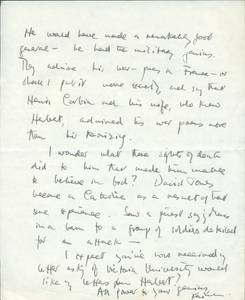 He would have made a remarkably good
general — he had the military genius.
They admire his war-poems in France — or
should I put it more exactly and say that
Henri Corbin and his wife, who knew
Herbert, admired his war poems more
than his
I wonder what those sights of death
did to him that made him unable
to believe in God? David Jones
became a Catholic as a result of
some experience. Saw a priest say Mass
in a barn to a group of soldiers
for an attack —
I expect you've now received my
letter asking if Victoria University would
like my letters from Herbert?
All power to your genius,